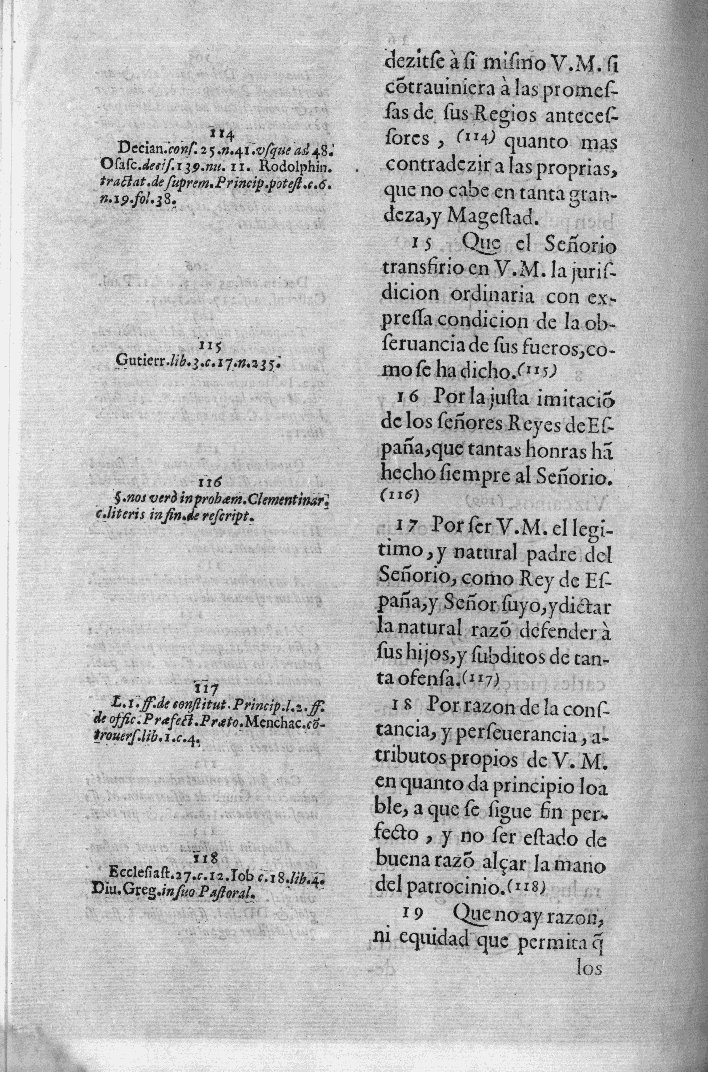 dezirſe à ſi miſmo V.M. ſi
cōtrauiniera à las promeſ-
ſas de ſus Regios anteceſ-
ſores, (114) quanto mas
contradezir a las proprias,
que no cabe en tanta gran-
deza, y Mageſtad.
15 Que el Señorio
transfirio en V.M. la juriſ-
dicion ordinaria con ex-
preſſa condicion de la ob-
ſeruancia de ſus fueros, co-
mo ſe ha dicho. (115)
16 Por la juſta imitaciō
de los ſeñores Reyes de Eſ-
paña, que tantas honras hā
hecho ſiempre al Señorio.
(116)
17 Por ſer V.M. el legi-
timo, y natural padre del
Señorio, como Rey de Eſ-
paña, y Señor ſuyo, y dictar
la natural razō defender à
ſus hijos, y ſubditos de tan-
ta ofenſa. (117)
18 Por razon de la conſ-
tancia, y perſeuerancia, a-
tributos propios de V. M.
en quanto da principio loa
ble, a que ſe sigue fin per-
fecto, y no ſer eſtado de
buena razō alçar la mano
del patrocinio. (118)
19 Que no ay razon,
ni equidad que permita q̃
los
114
Decian. conſ. 25. n. 41. vſque ad 48.
Oſaſc. deciſ. 139. nu. 11. Rodolphin.
tractat. de ſuprem. Princip. poteſt. c. 6.
n. 19. fol. 38.
115
Gutierr. lib. 3. c. 17. n. 235.
116
§. nos verò in probœm. Clementinar.
c. literis in fin. de reſcript.
117
L. 1. ff. de conſtitut. Princip. l. 2. ff.
de offic. Præfect. Præto. Menchac. cō-
trouerſ. lib. 1. c. 4.
118
Eccleſiaſt. 27. c. 12. Iob c. 18. lib. 4.
Diu. Greg. in ſuo Paſtoral.